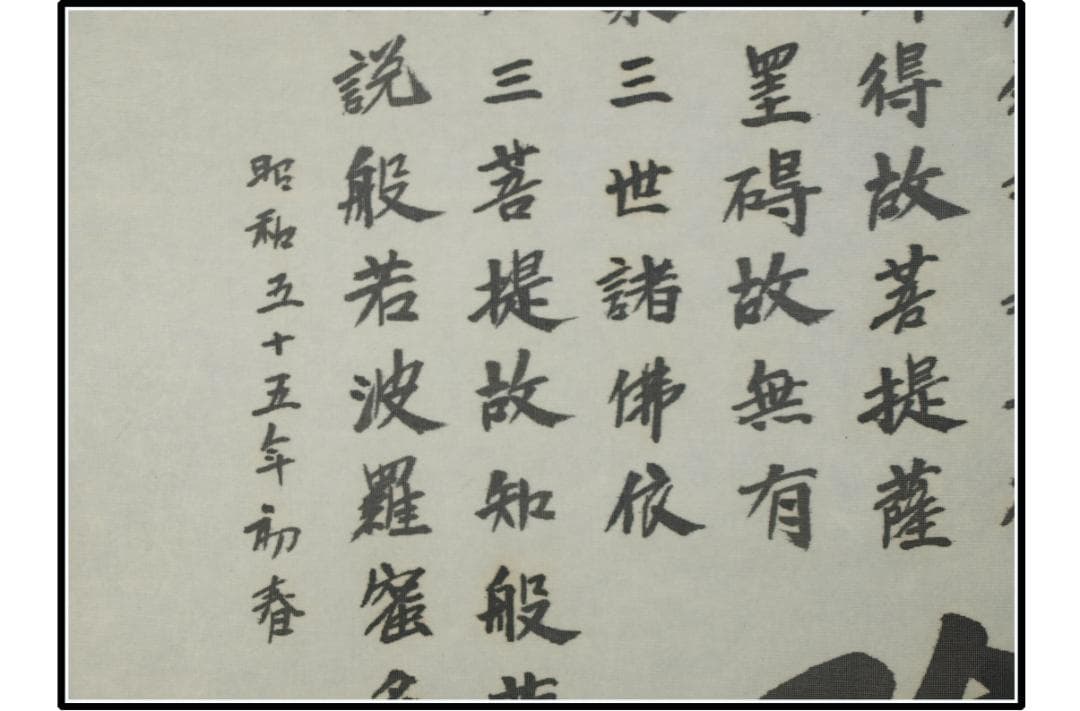 得故菩提薩
罣碍故無有
三世諸佛依
三菩提故知般
説般若波羅蜜多
昭和五十五年初春